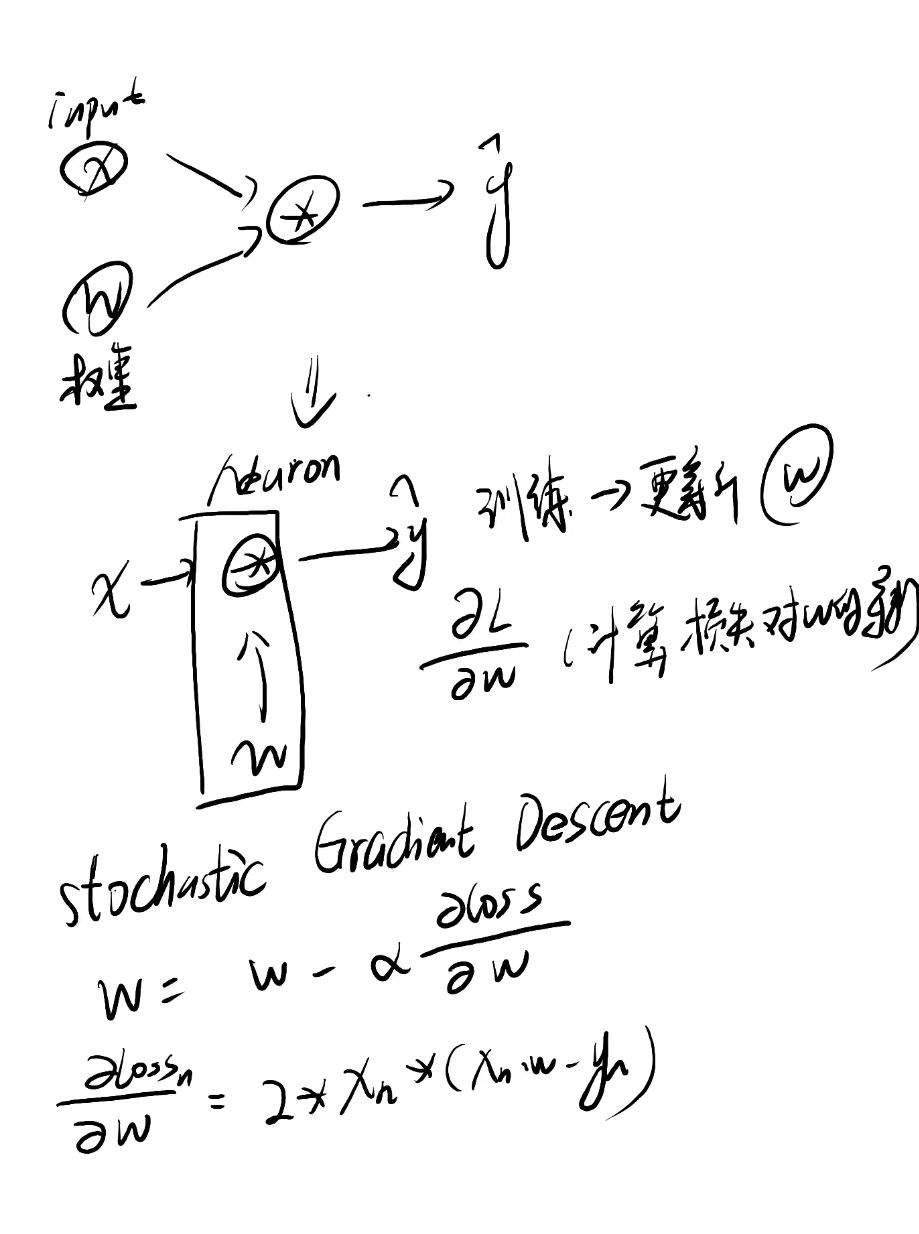 input
x
* → ŷ
w
权重
⇓
neuron
x → * → ŷ
↑
w
训练 → 更新 w
∂L/∂w (计算损失对w的导)
stochastic Gradient Descent
w = w - α ∂loss/∂w
∂lossₙ/∂w = 2 * xₙ * (xₙ·w - yₙ)